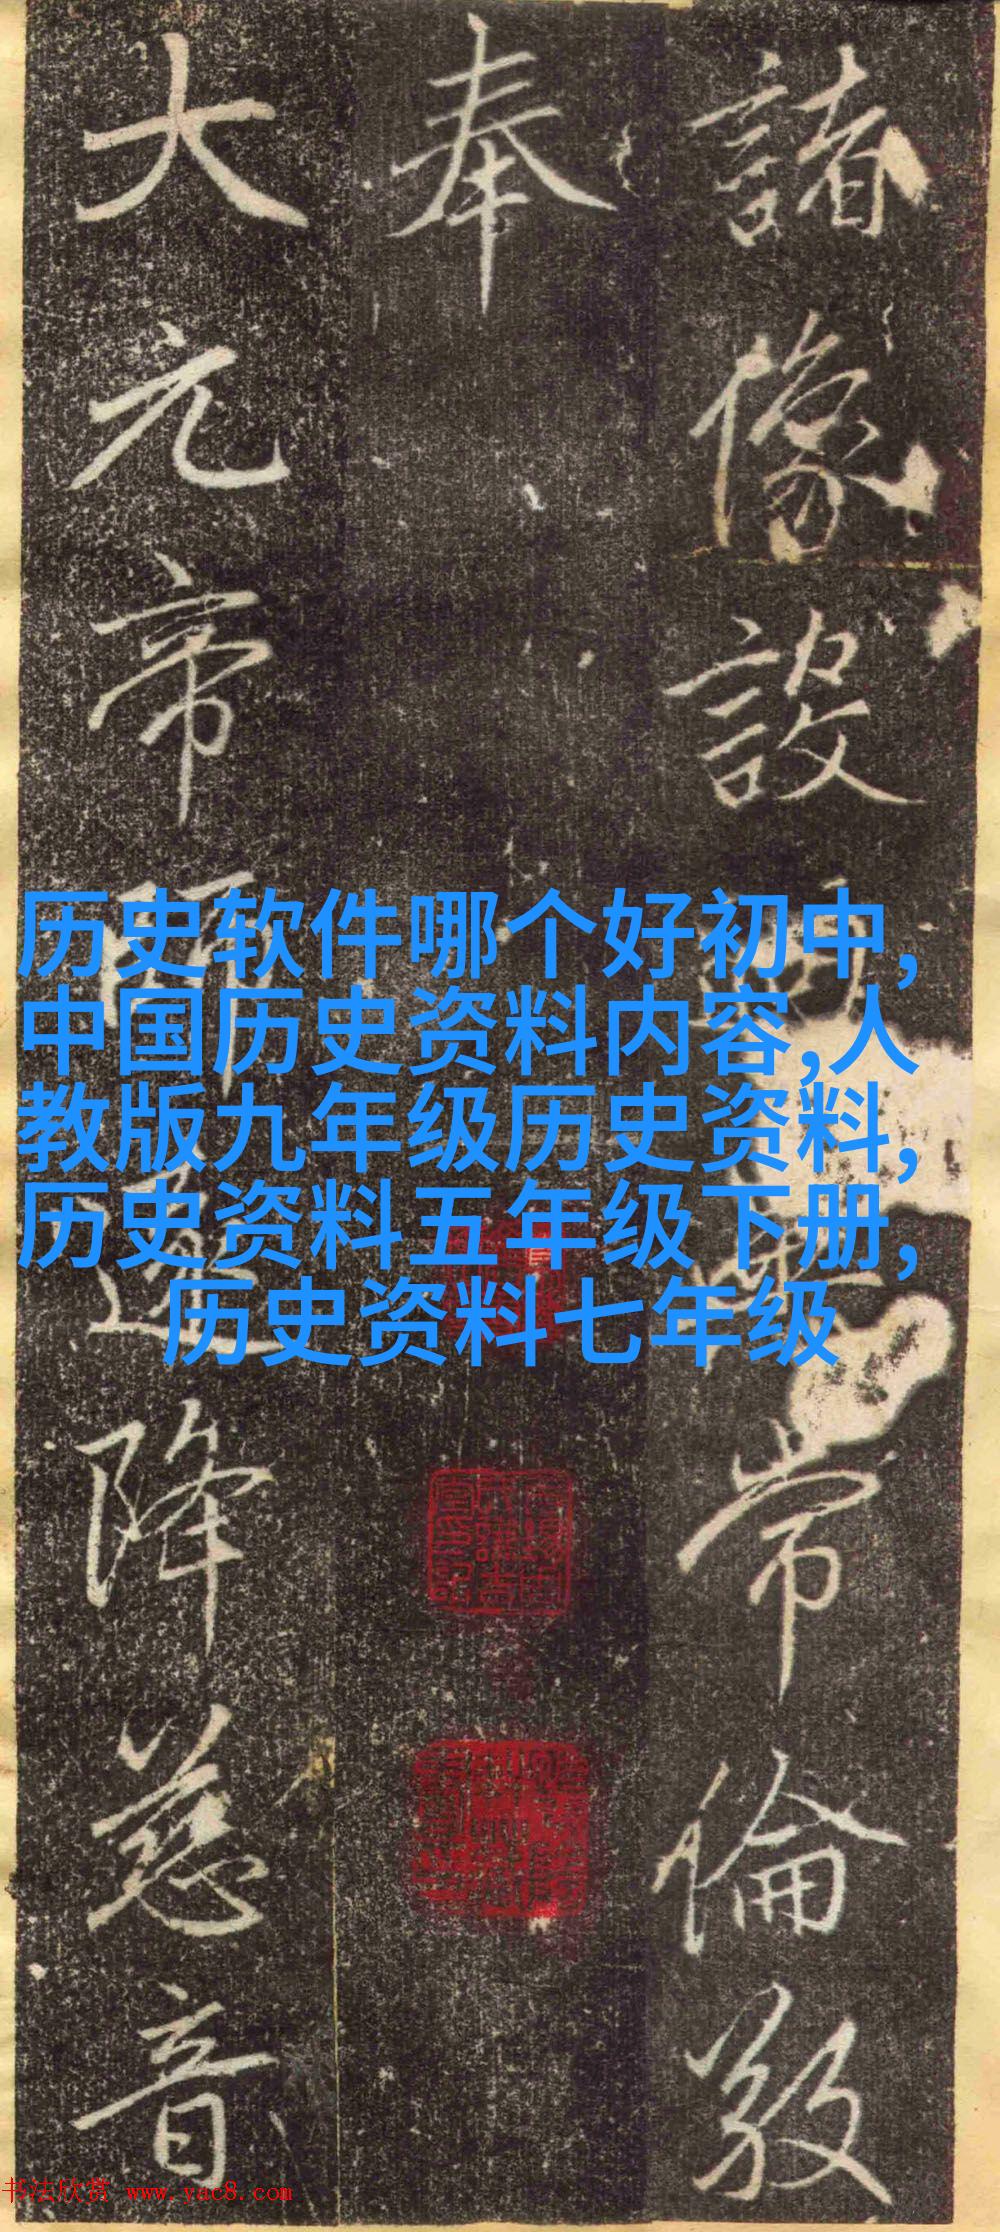 諸像設常倫敎
奉
大元帝降慈音
历史软件哪个好初中,
中国历史资料内容,人
教版九年级历史资料,
历史资料五年级下册,
历史资料七年级
书法欣赏 www.yac8.com